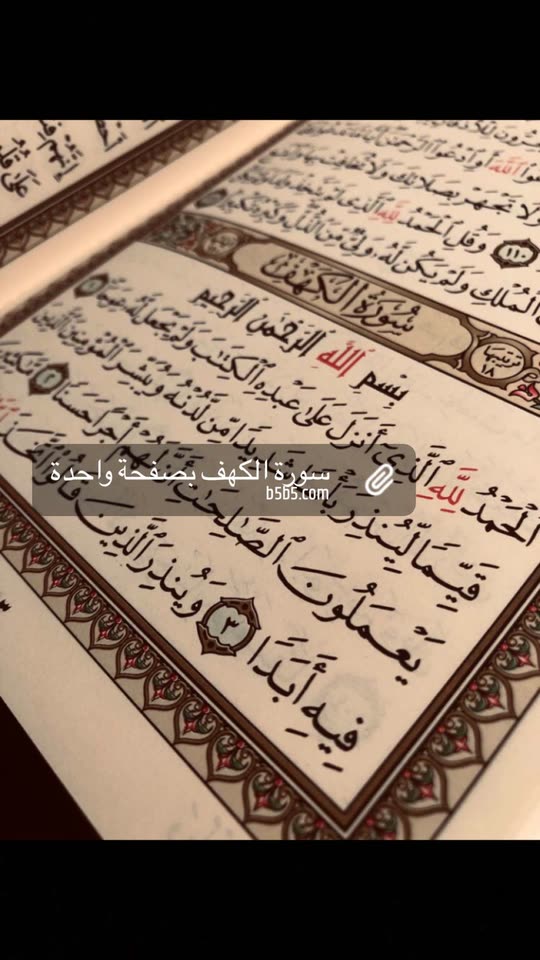 ٱللَّهَ أَوِ ٱدْعُوا۟ ٱلرَّحْمَٰنَ
وَلَا تَجْهَرْ بِصَلَاتِكَ وَلَا تُخَافِتْ بِهَا
١١٠ وَقُلِ ٱلْحَمْدُ لِلَّهِ ٱلَّذِى لَمْ
ٱلْمُلْكِ وَلَمْ يَكُن لَّهُۥ وَلِىٌّ مِّنَ ٱلذُّلِّ وَكَبِّرْهُ تَكْبِيرًا
ترتيبها ١٨ سُورَةُ الْكَهْفِ
بِسْمِ ٱللَّهِ ٱلرَّحْمَٰنِ ٱلرَّحِيمِ
ٱلْحَمْدُ لِلَّهِ ٱلَّذِىٓ أَنزَلَ عَلَىٰ عَبْدِهِ ٱلْكِتَٰبَ وَلَمْ يَجْعَل لَّهُۥ عِوَجَا ١
قَيِّمًا لِّيُنذِرَ بَأْسًا شَدِيدًا مِّن لَّدُنْهُ وَيُبَشِّرَ ٱلْمُؤْمِنِينَ ٱلَّذِينَ
يَعْمَلُونَ ٱلصَّٰلِحَٰتِ أَنَّ لَهُمْ أَجْرًا حَسَنًا ٢ مَّٰكِثِينَ
فِيهِ أَبَدًا ٣ وَيُنذِرَ ٱلَّذِينَ قَالُوا۟ ٱتَّخَذَ
سورة الكهف بصفحة واحدة
b5b5.com